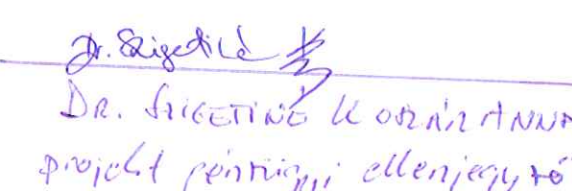 Dr. Szigetiné
DR. SZIGETINÉ ANNA
projekt pénzügyi ellenjegyző